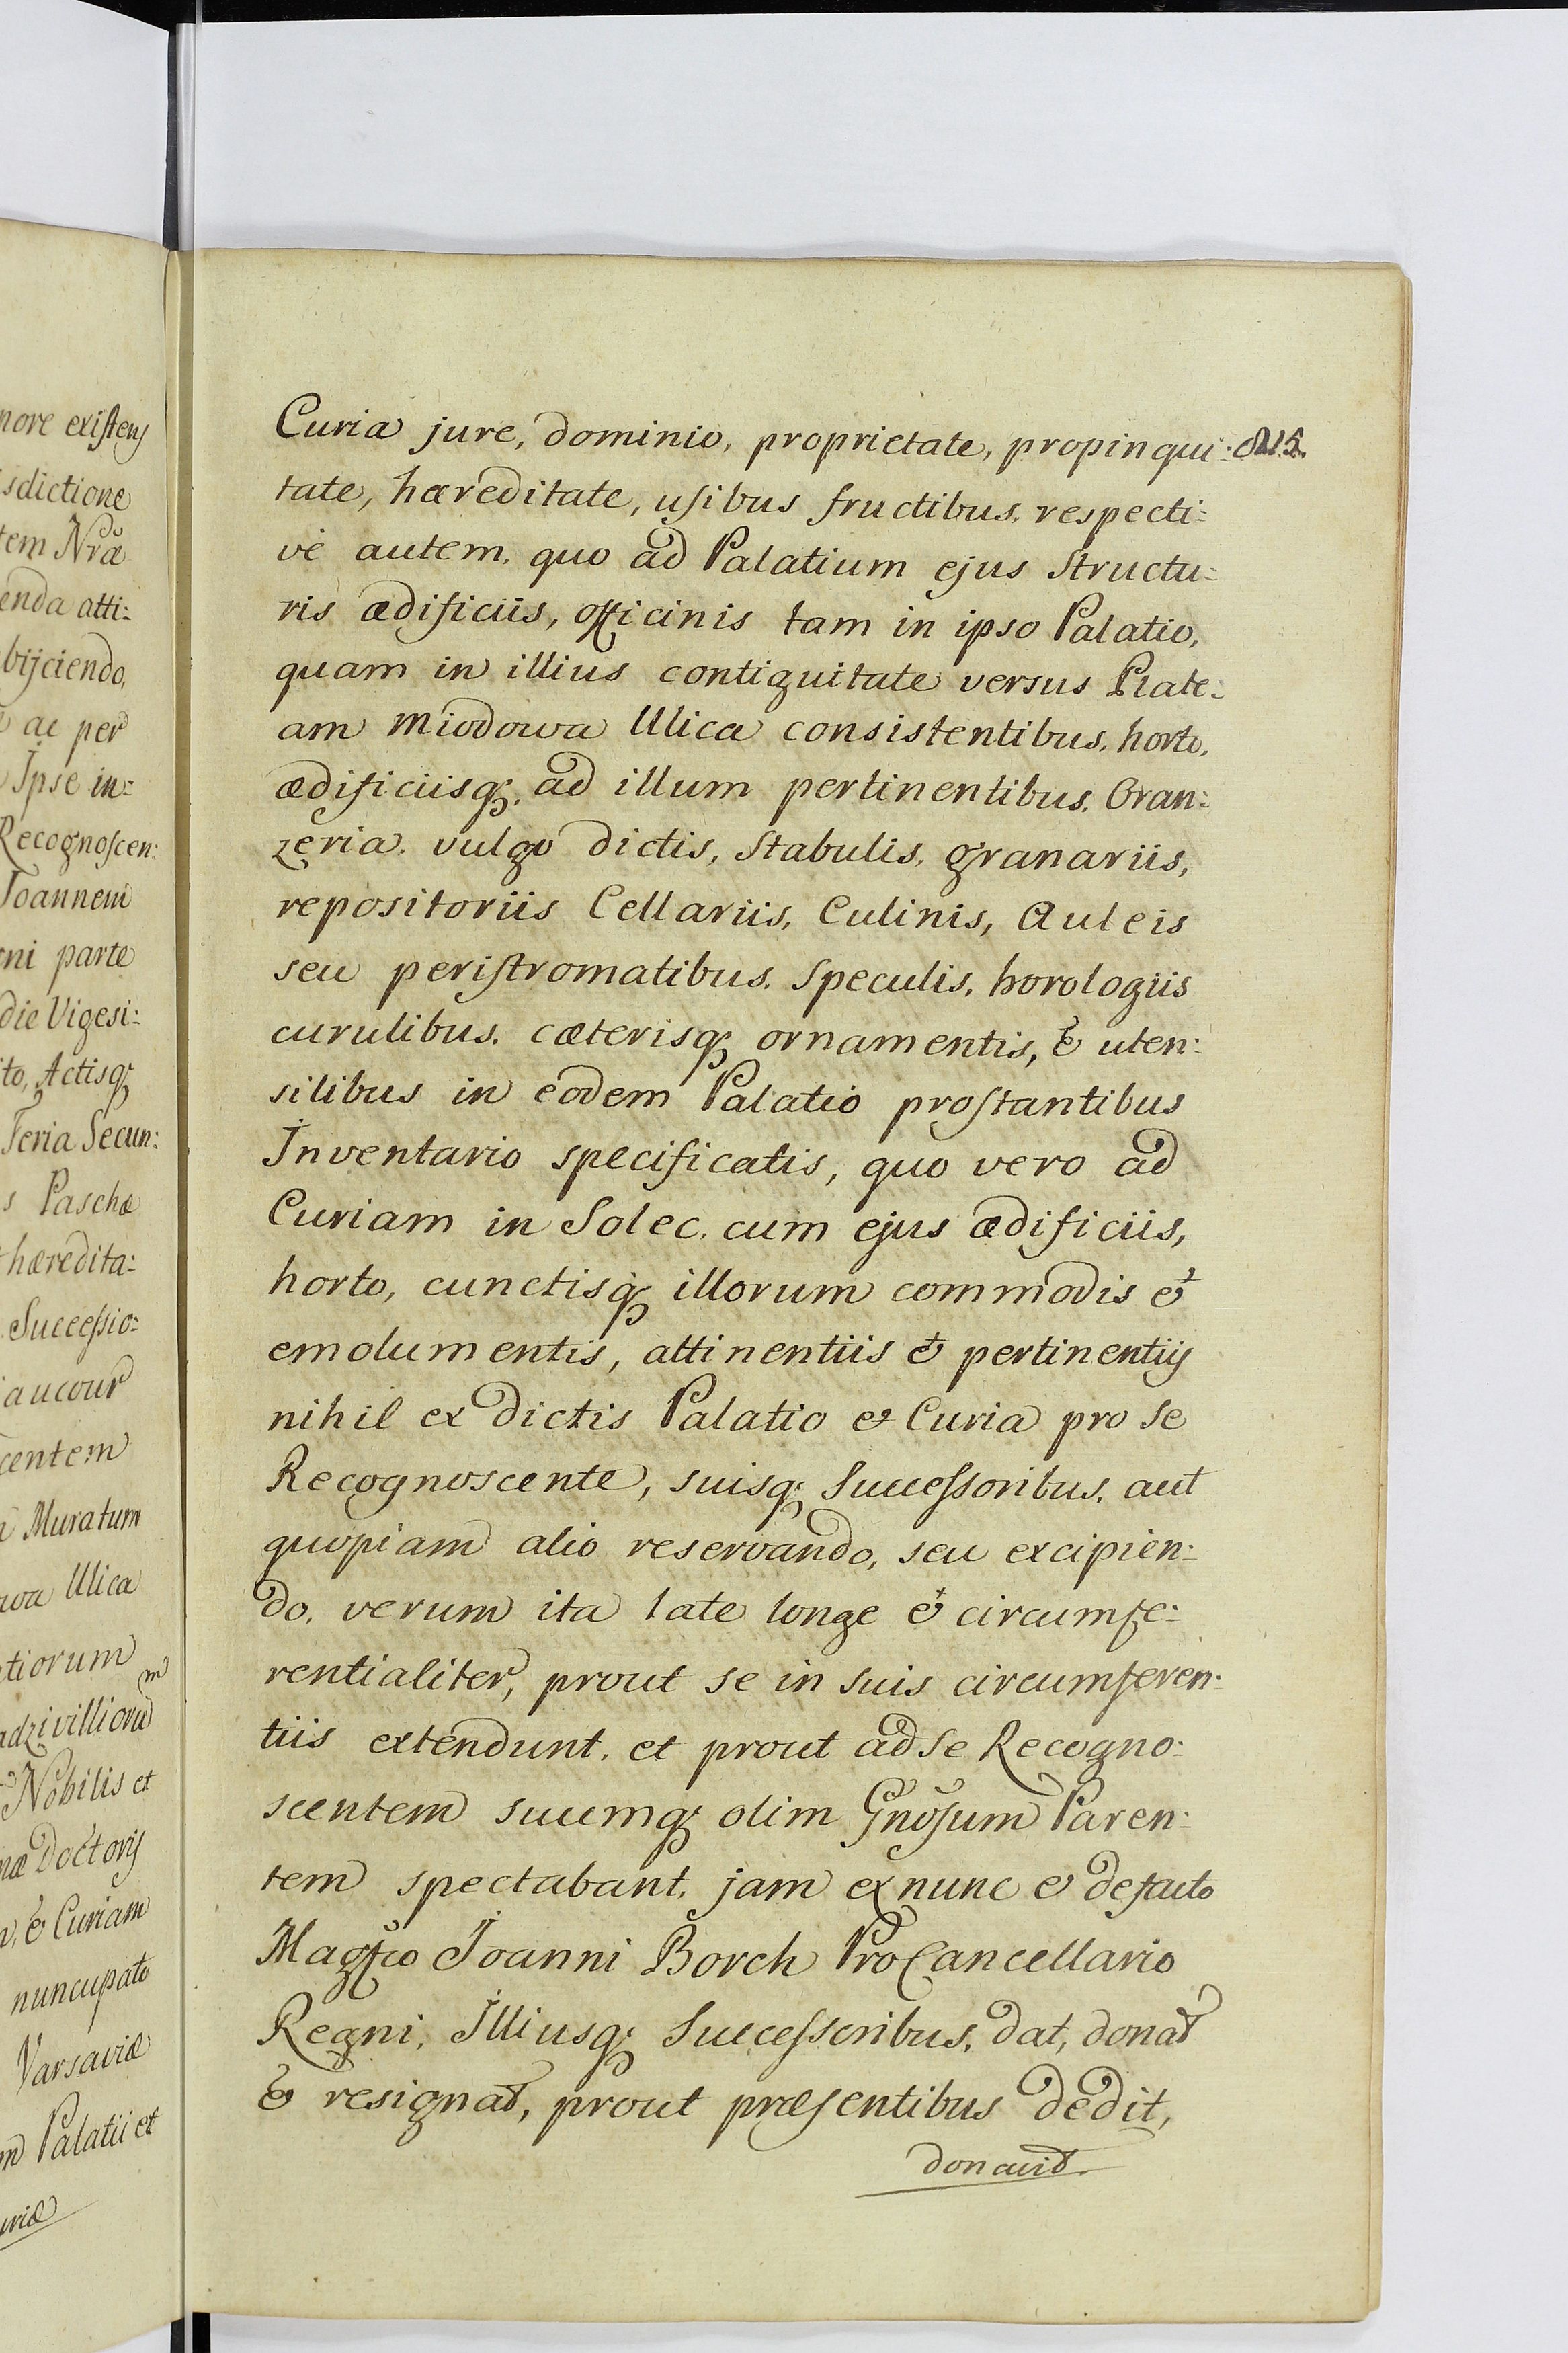 nore existens
sdictione
tem Nrae
enda atti:
bijciendo,
ac per
Ipse in:
Recognoscen:
Joannem
ni parte
die Vigesi:
to, Actisq;
Feria Secun:
s Paschæ
hæredita:
Successio:
aucour
centem
Muratum
wa Ulica
tiorum
adzivilliorum
Nobilis et
næ Doctoris
& Curiam
nuncupato
Varsaviæ
m Palatii et
uriæ
Curia jure, dominio, proprietate, propinqui:
tate, hæreditate, usibus fructibus, respecti:
vè autem, quo ad Palatium ejus Structu:
ris ædificiis, officinis tam in ipso Palatio,
quam in illius contiguitate versus Plate:
am Miodowa Ulica consistentibus, horto,
ædificiisq; ad illum pertinentibus, Oran:
zeria vulgo dictis, Stabulis, granariis,
repositoriis Cellariis, Culinis, Auleis
seu peristromatibus, Speculis, horologiis
curulibus, cæterisq; ornamentis, & uten:
silibus in eodem Palatio prostantibus
Inventario specificatis, quo vero ad
Curiam in Solec, cum ejus ædificiis,
horto, cunctisq; illorum commodis &
emolumentis, attinentiis & pertinentiis
nihil ex dictis Palatio et Curia pro Se
Recognoscente, suisq; Successoribus, aut
quopiam alio reservando, seu excipien:
do, verum ita late longe & circumfe:
rentialiter, prout se in suis circumferen:
tiis extendunt, et prout ad Se Recogno:
scentem suumq; olim Gnosum Paren:
tem spectabant, jam ex nunc & defacto
Magfco Joanni Borch ProCancellario
Regni, Illiusq; Successoribus, dat, donat
& resignat, prout præsentibus dedit,
donavit